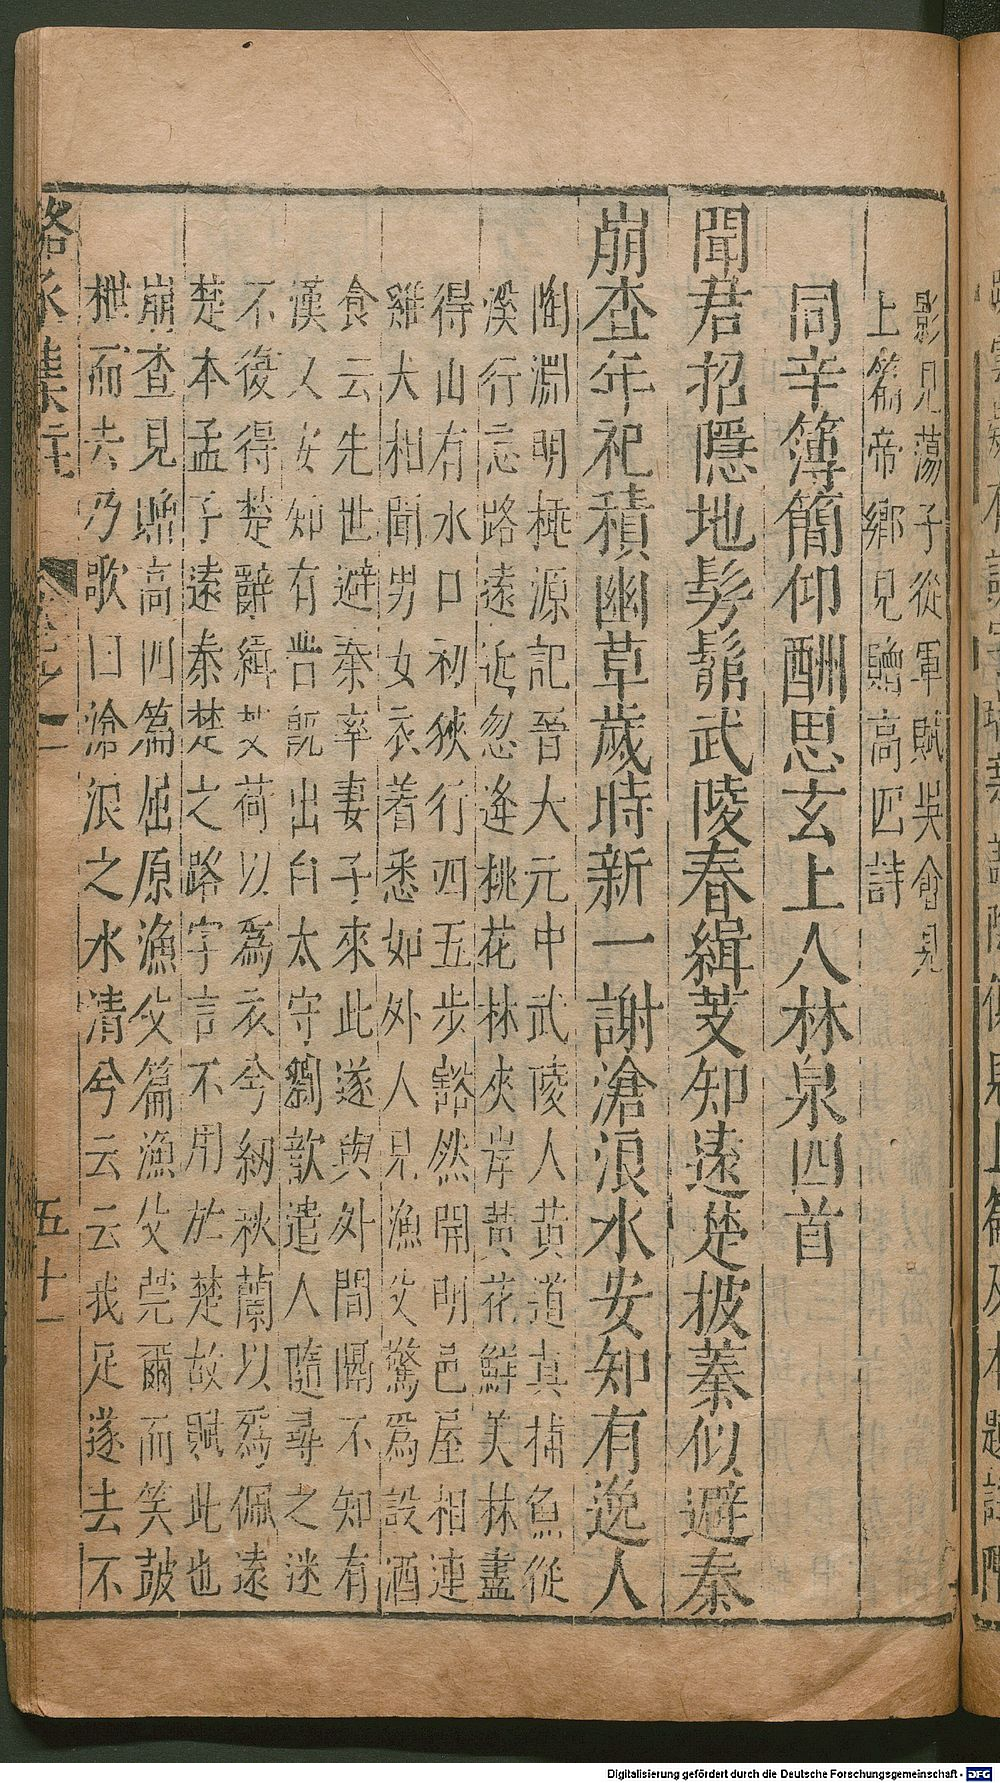 影見蕩子從軍賦吳會見
上篇帝鄉見贈高四詩
同辛簿簡仰酬思玄上人林泉四首
聞君招隱地髣髴武陵春緝芰知遠楚披蓁似避秦
崩查年祀積幽草歲時新一謝滄浪水安知有逸人
陶淵明桃源記晉大元中武陵人黃道真捕魚從
溪行忘路遠近忽逢桃花林夾岸黃花鮮美林盡
得山有水口初狹行四五步豁然開明邑屋相連
雞犬相聞男女衣着悉如外人見漁父驚為設酒
食云先世避秦率妻子來此遂與外間隔不知有
漢又安知有晉既出白太守劉歆遣人隨尋之迷
不復得楚辭緝芰荷以為衣兮紉秋蘭以為佩遠
楚本孟子遠秦楚之路字言不用於楚故賦此也
崩查見贈高四篇屈原漁父篇漁父莞爾而笑鼓
枻而去乃歌曰滄浪之水清兮云云我足遂去不
駱丞集註 卷之二 五十一
Digitalisierung gefördert durch die Deutsche Forschungsgemeinschaft - DFG